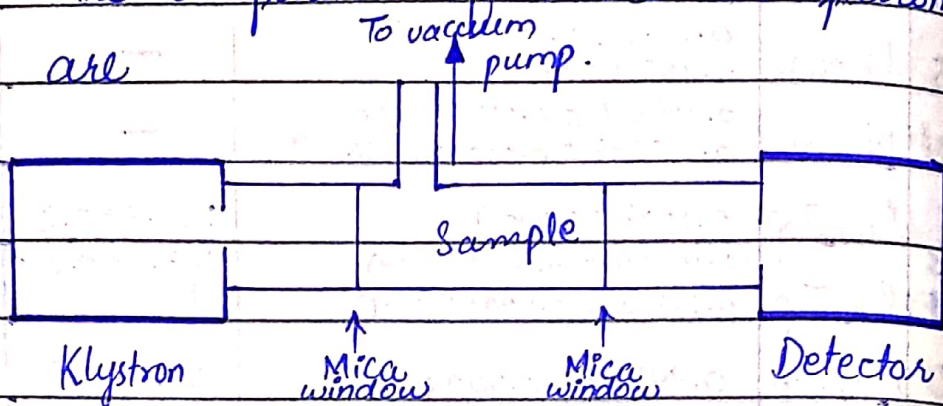 To vaccum
are
pump.
Sample
Klystron
Mica
window
Mica
window
Detector